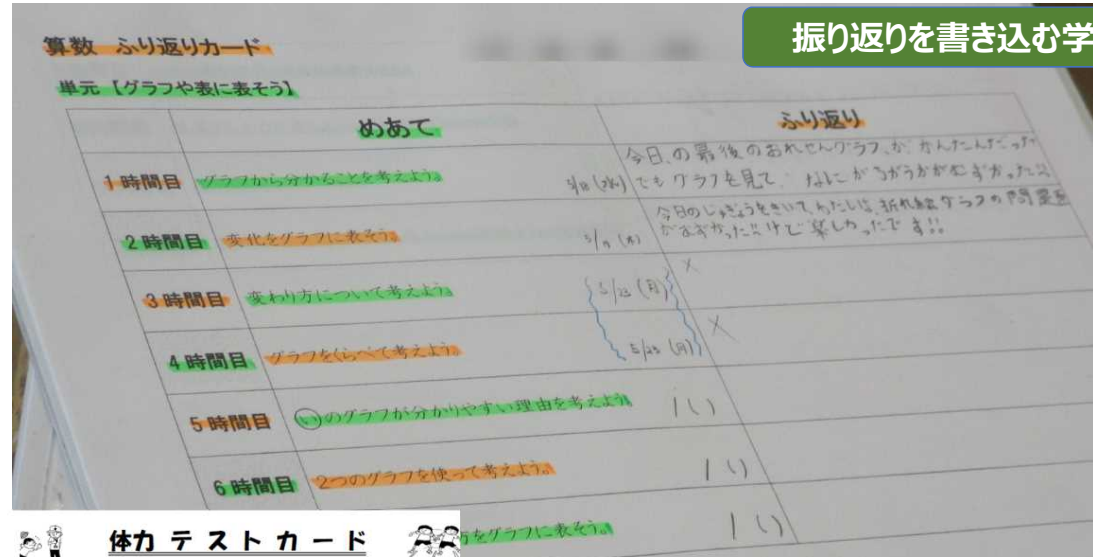 振り返りを書き込む学
算数 ふり返りカード
単元【グラフや表に表そう】
めあて ふり返り
1時間目 グラフから分かることを考えよう。 5/18(水) 今日の最後のおれせんグラフが、かんたんだった
でもグラフを見て、なにがちがうかがむずかった
2時間目 変化をグラフに表そう。 5/19(木) 今日のじゅぎょうをきいて、わたしは、折れ線グラフの問題
がむずかったけど楽しかったです!!
3時間目 変わり方について考えよう。 5/23(月) ×
4時間目 グラフをくらべて考えよう。 5/23(月) ×
5時間目 いのグラフが分かりやすい理由を考えよう。 /( )
6時間目 2つのグラフを使って考えよう。 /( )
方をグラフに表そう。 /( )
体力テストカード